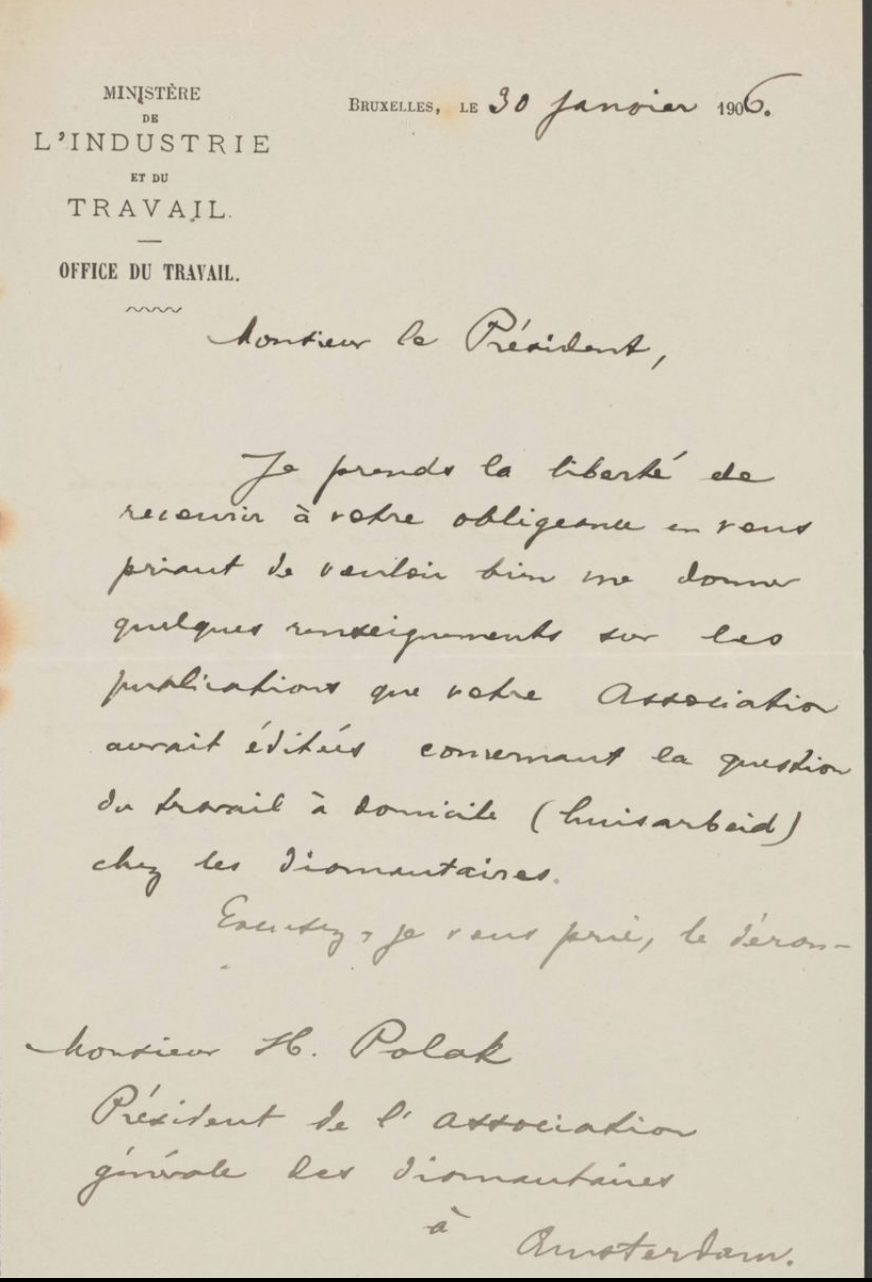 MINISTÈRE
DE
L'INDUSTRIE
ET DU
TRAVAIL.
OFFICE DU TRAVAIL.
BRUXELLES, LE 30 janvier 1906.
Monsieur le Président,
Je prends la liberté de
recourir à votre obligeance en vous
priant de vouloir bien me donner
quelques renseignements sur les
publications que votre Association
aurait éditées concernant la question
du travail à domicile (huisarbeid)
chez les diamantaires.
Excusez, je vous prie, le déran-
Monsieur H. Polak
Président de l'Association
générale des diamantaires
à
Amsterdam.